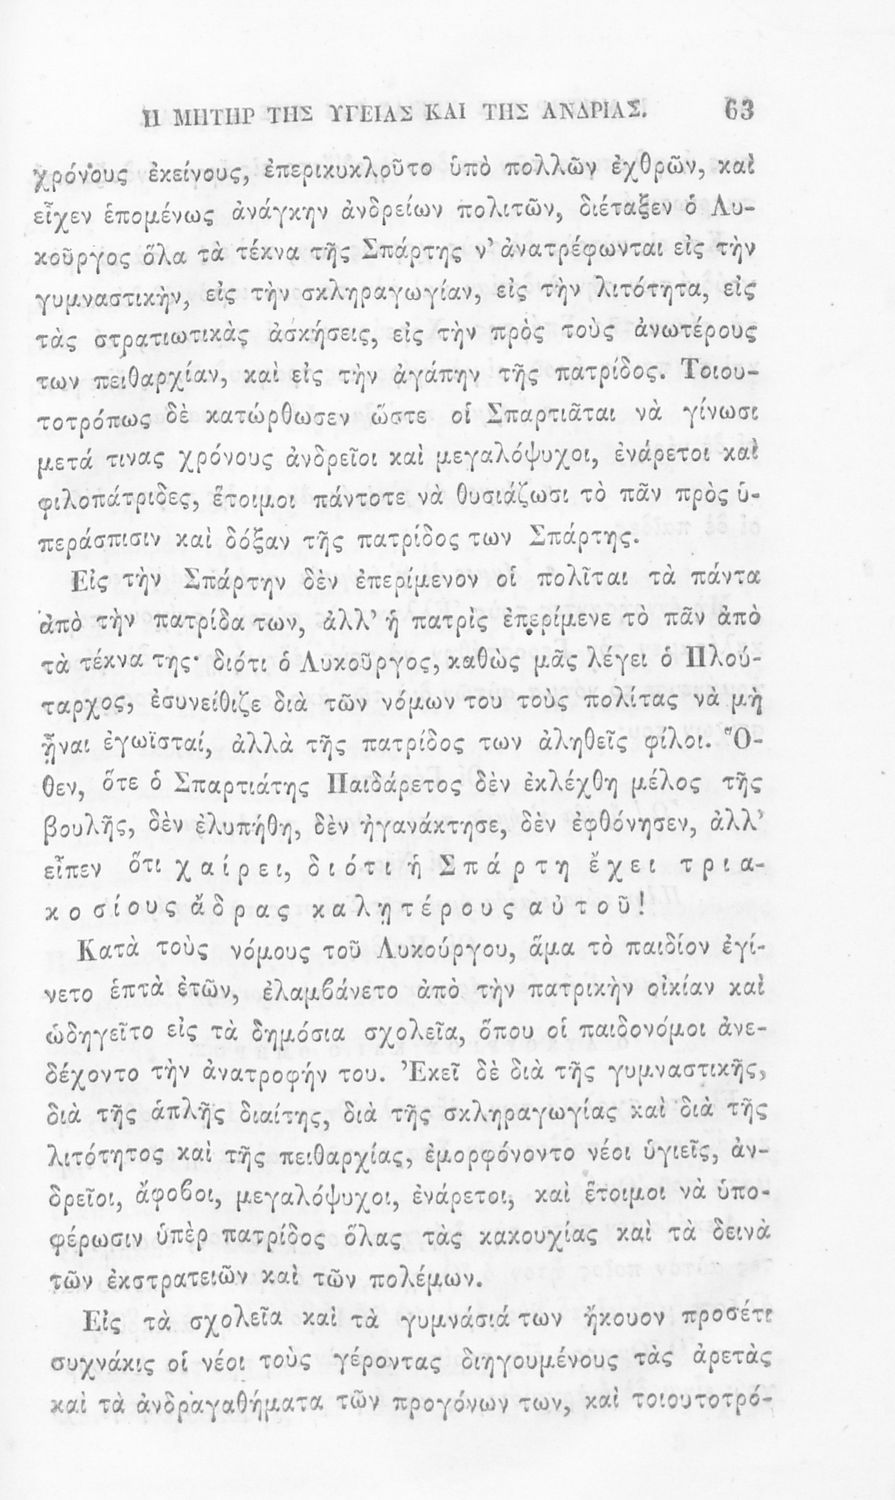 Η ΜΗΤΗΡ ΤΗΣ ΥΓΕΙΑΣ ΚΑΙ ΤΗΣ ΑΝΔΡΙΑΣ. 63
χρόνους ἐκείνους, ἐπερικυκλοῦτο ὑπὸ πολλῶν ἐχθρῶν, καὶ
εἶχεν ἑπομένως ἀνάγκην ἀνδρείων πολιτῶν, διέταξεν ὁ Λυ-
κοῦργος ὅλα τὰ τέκνα τῆς Σπάρτης ν' ἀνατρέφωνται εἰς τὴν
γυμναστικὴν, εἰς τὴν σκληραγωγίαν, εἰς τὴν λιτότητα, εἰς
τὰς στρατιωτικὰς ἀσκήσεις, εἰς τὴν πρὸς τοὺς ἀνωτέρους
των πειθαρχίαν, καὶ εἰς τὴν ἀγάπην τῆς πατρίδος. Τοιου-
τοτρόπως δὲ κατώρθωσεν ὥστε οἱ Σπαρτιᾶται νὰ γίνωσι
μετά τινας χρόνους ἀνδρεῖοι καὶ μεγαλόψυχοι, ἐνάρετοι καὶ
φιλοπάτριδες, ἕτοιμοι πάντοτε νὰ θυσιάζωσι τὸ πᾶν πρὸς ὑ-
περάσπισιν καὶ δόξαν τῆς πατρίδος των Σπάρτης.
Εἰς τὴν Σπάρτην δὲν ἐπερίμενον οἱ πολῖται τὰ πάντα
ἀπὸ τὴν πατρίδα των, ἀλλ' ἡ πατρὶς ἐπερίμενε τὸ πᾶν ἀπὸ
τὰ τέκνα της· διότι ὁ Λυκοῦργος, καθὼς μᾶς λέγει ὁ Πλού-
ταρχος, ἐσυνείθιζε διὰ τῶν νόμων του τοὺς πολίτας νὰ μὴ
ἦναι ἐγωϊσταί, ἀλλὰ τῆς πατρίδος των ἀληθεῖς φίλοι. Ὅ-
θεν, ὅτε ὁ Σπαρτιάτης Παιδάρετος δὲν ἐκλέχθη μέλος τῆς
βουλῆς, δὲν ἐλυπήθη, δὲν ἠγανάκτησε, δὲν ἐφθόνησεν, ἀλλ'
εἶπεν ὅτι χαίρει, διότι ἡ Σπάρτη ἔχει τρια-
κοσίους ἄδρας καλητέρους αὐτοῦ!
Κατὰ τοὺς νόμους τοῦ Λυκούργου, ἅμα τὸ παιδίον ἐγί-
νετο ἑπτὰ ἐτῶν, ἐλαμβάνετο ἀπὸ τὴν πατρικὴν οἰκίαν καὶ
ὡδηγεῖτο εἰς τὰ δημόσια σχολεῖα, ὅπου οἱ παιδονόμοι ἀνε-
δέχοντο τὴν ἀνατροφήν του. Ἐκεῖ δὲ διὰ τῆς γυμναστικῆς,
διὰ τῆς ἁπλῆς διαίτης, διὰ τῆς σκληραγωγίας καὶ διὰ τῆς
λιτότητος καὶ τῆς πειθαρχίας, ἐμορφόνοντο νέοι ὑγιεῖς, ἀν-
δρεῖοι, ἄφοβοι, μεγαλόψυχοι, ἐνάρετοι, καὶ ἕτοιμοι νὰ ὑπο-
φέρωσιν ὑπὲρ πατρίδος ὅλας τὰς κακουχίας καὶ τὰ δεινὰ
τῶν ἐκστρατειῶν καὶ τῶν πολέμων.
Εἰς τὰ σχολεῖα καὶ τὰ γυμνάσιά των ἤκουον προσέτι
συχνάκις οἱ νέοι τοὺς γέροντας διηγουμένους τὰς ἀρετὰς
καὶ τὰ ἀνδραγαθήματα τῶν προγόνων των, καὶ τοιουτοτρό-